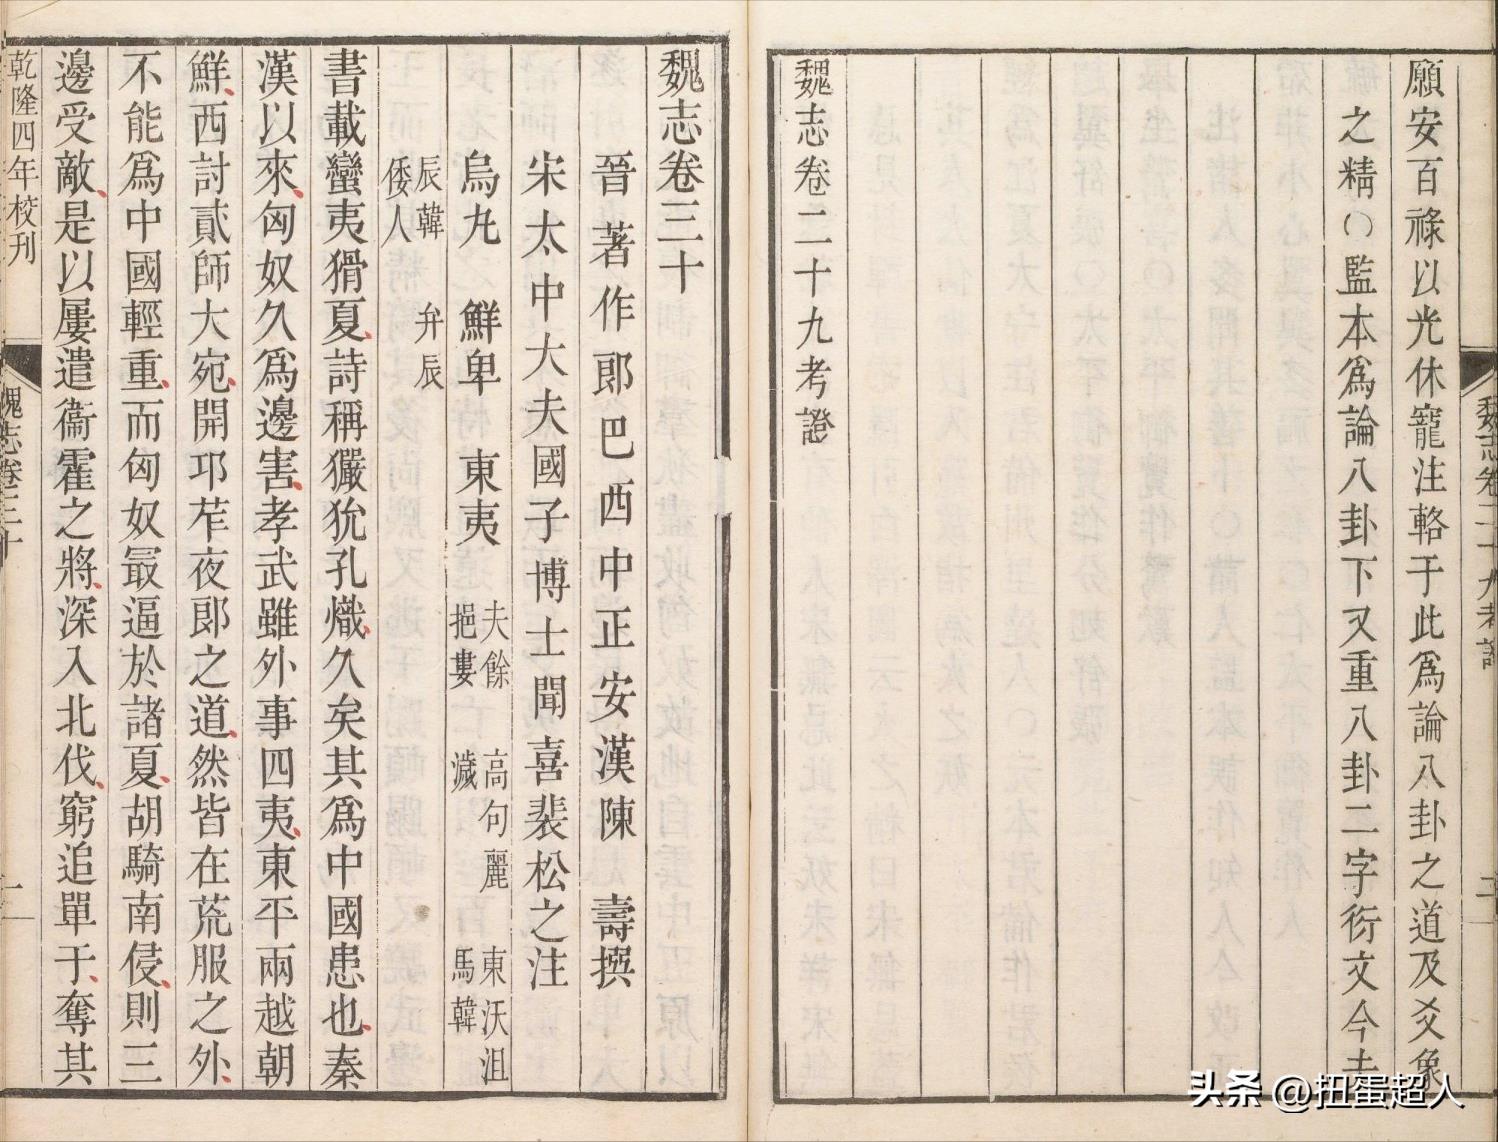 願安百祿以光休寵注輅于此爲論八卦之道及爻象
之精〇監本爲論八卦下又重八卦二字衍文今去
魏志卷二十九考證
魏志卷二十九考證
魏志卷三十
晉著作郎巴西中正安漢陳壽撰
宋太中大夫國子博士聞喜裴松之注
烏丸 鮮卑 東夷 夫餘 高句麗 東沃沮
挹婁 濊 馬韓
辰韓 弁辰
倭人
書載蠻夷猾夏詩稱玁狁孔熾久矣其爲中國患也秦
漢以來匈奴久爲邊害孝武雖外事四夷東平兩越朝
鮮西討貳師大宛開邛苲夜郎之道然皆在荒服之外
不能爲中國輕重而匈奴最逼於諸夏胡騎南侵則三
邊受敵是以屢遣衞霍之將深入北伐窮追單于奪其
乾隆四年校刊
魏志卷三十
一
头条 @扭蛋超人